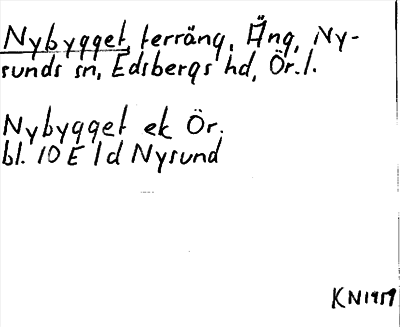 Nybygget, terräng, Äng, Ny-
sunds sn, Edsbergs hd, Ör. l.
Nybygget ek Ör.
bl. 10 E 1 d Nysund
KN1959